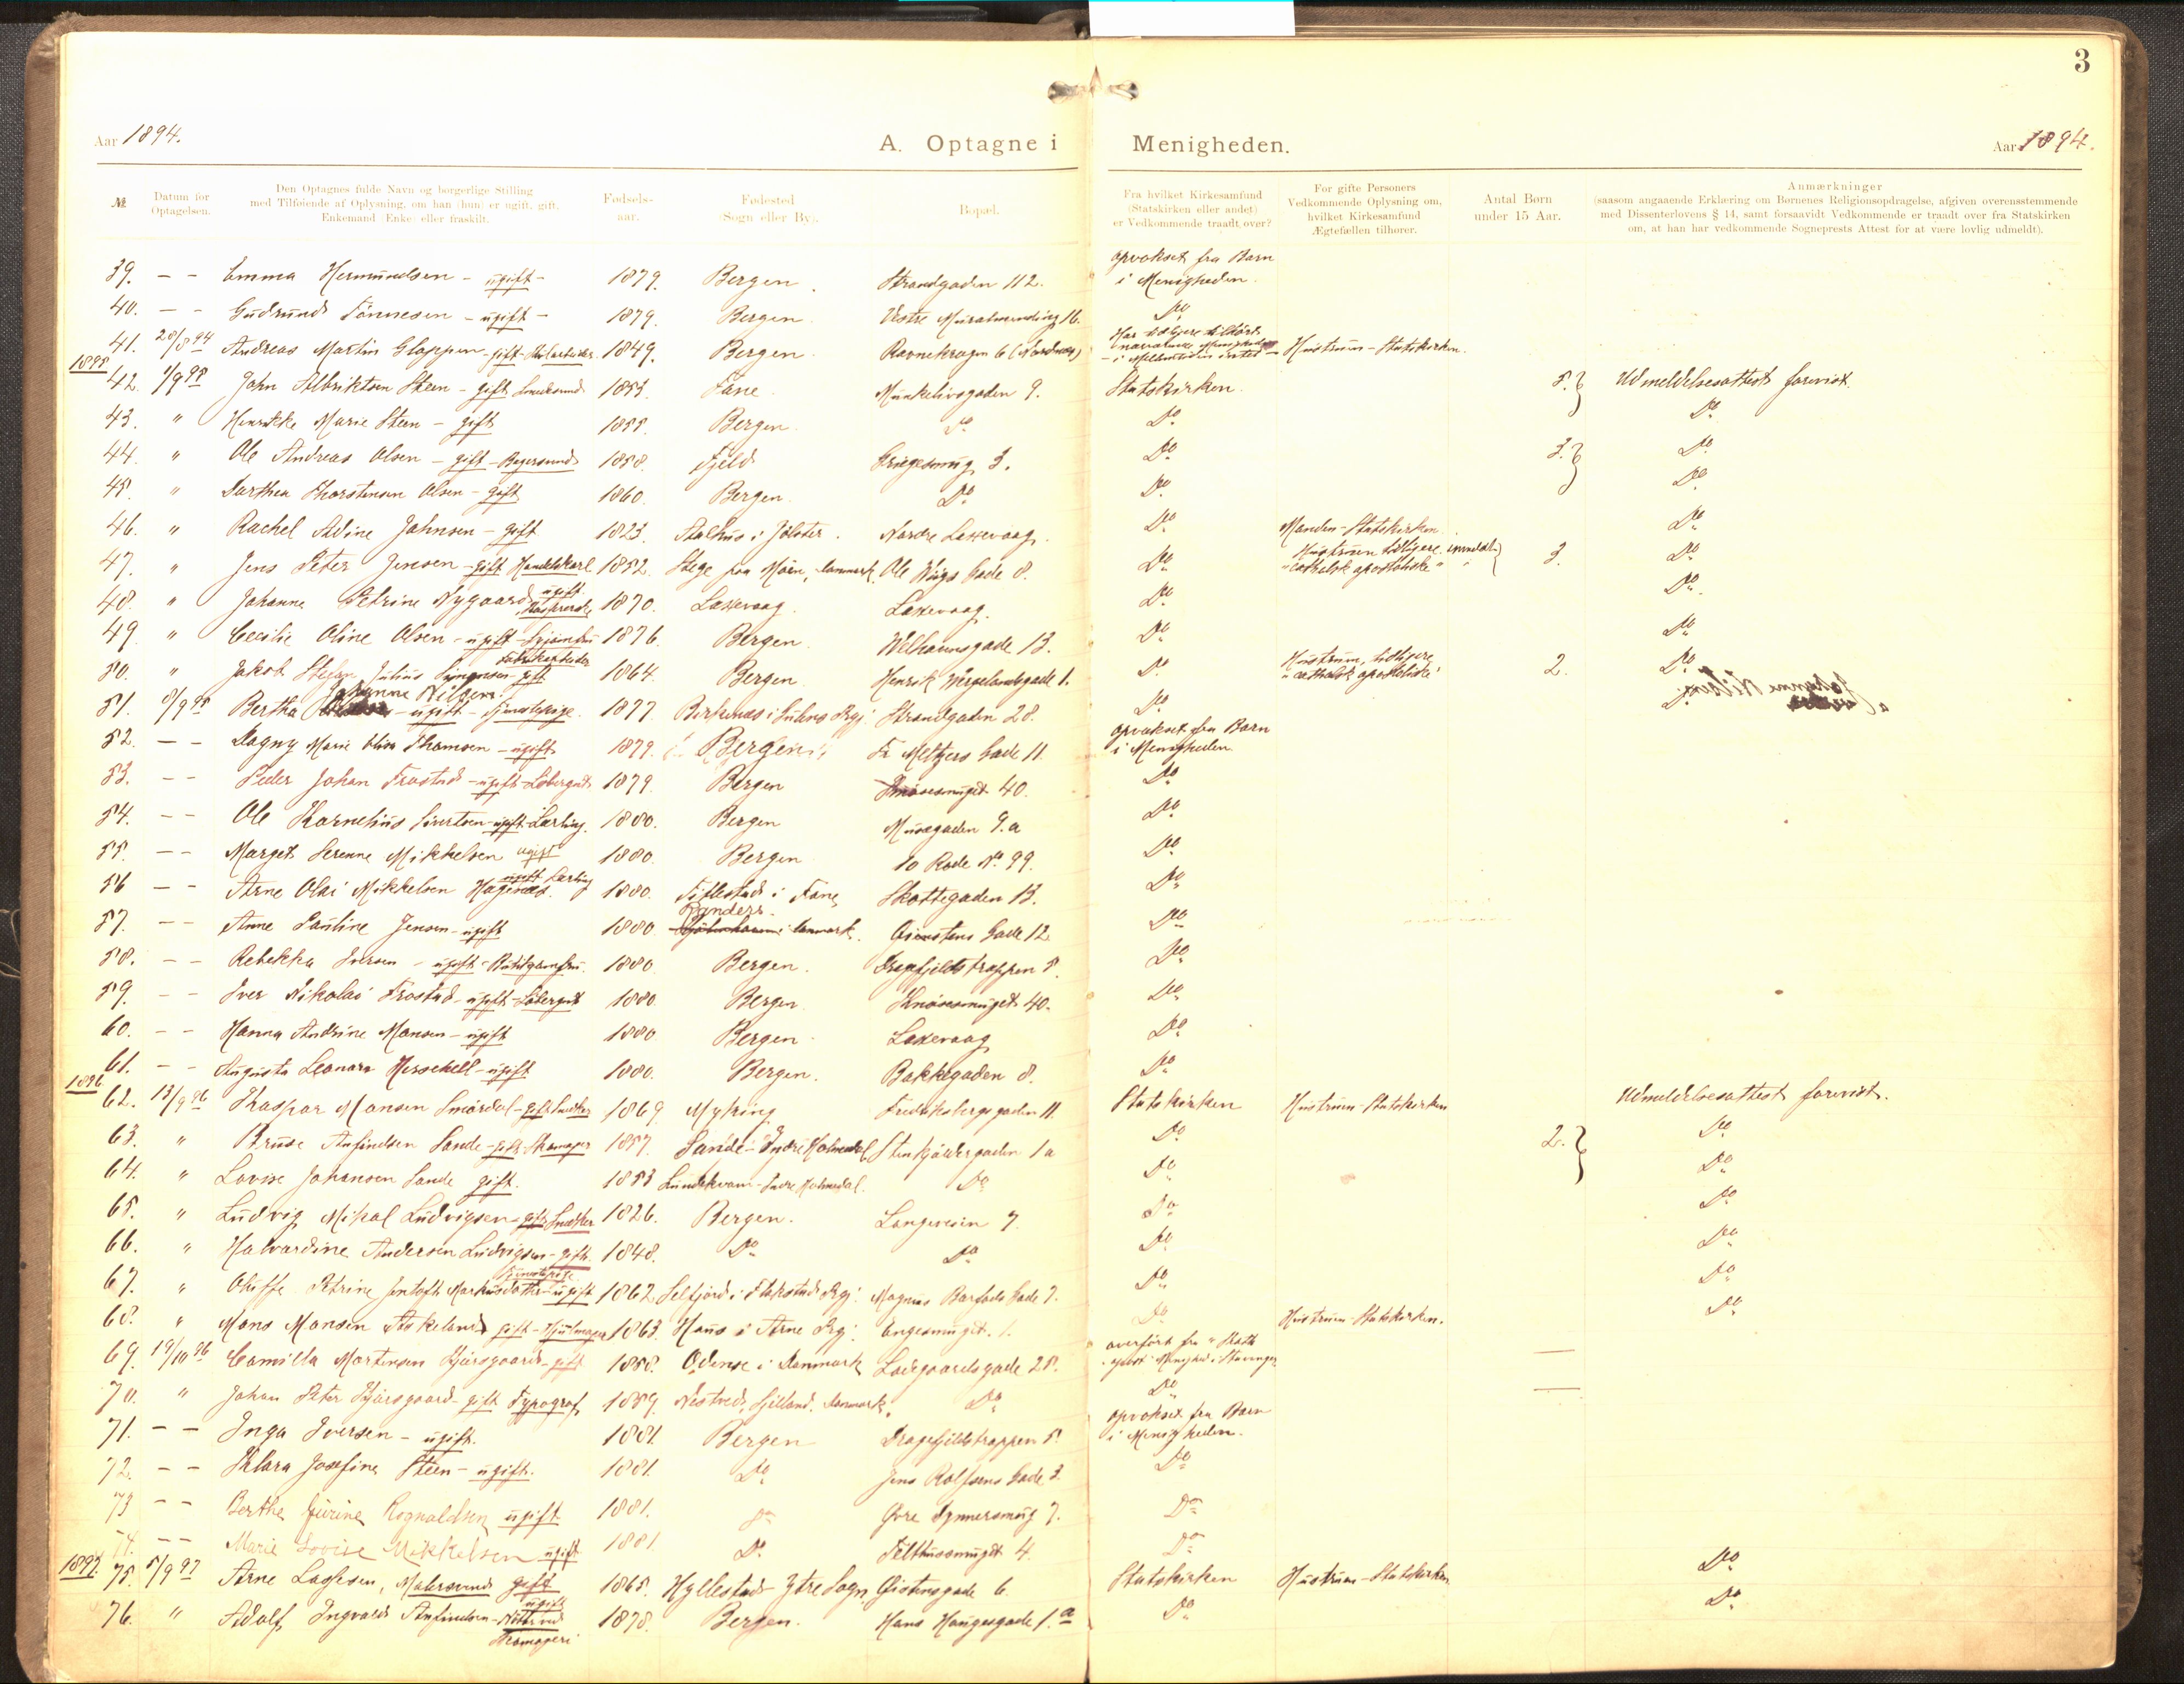 3
Aar 1894.
A. Optagne i Menigheden.
Aar 1894.
№
Datum for Optagelsen.
Den Optagnes fulde Navn og borgerlige Stilling med Tilføiende af Oplysning, om han (hun) er ugift, gift, Enkemand (Enke) eller fraskilt.
Fødsels-aar.
Fødested (Sogn eller By).
Bopæl.
Fra hvilket Kirkesamfund (Statskirken eller andet) er Vedkommende traadt over?
For gifte Personers Vedkommende Oplysning om, hvilket Kirkesamfund Ægtefællen tilhører.
Antal Børn under 15 Aar.
Anmærkninger (saasom angaaende Erklæring om Børnenes Religionsopdragelse, afgiven overensstemmende med Dissenterlovens § 14, samt forsaavidt Vedkommende er traadt over fra Statskirken om, at han har vedkommende Sogneprests Attest for at være lovlig udmeldt).
39. – – Emma Hermundsen – ugift – 1879. Bergen. Strandgaden 112. opvokset fra Barn i Menigheden.
40. – – Gudrund Tönnesen – ugift – 1879. Bergen. Vestre Muralmending 16. Do
41. 28/8 94 Andreas Martin Gloppen – gift – 1849. Bergen. Ravnekrogen 6 (Nordnæs) Hustruen – Statskirken.
1895
42. 1/9 95 John Albriktsen Steen – gift Smedsvend 1853. Fane. Munkelivsgaden 9. Statskirken. 5. Udmeldelsesattest forevist.
43. " Henrikke Marie Steen – gift 1855. Bergen. Do Do Do
44. " Ole Andreas Olsen – gift – Bøgersvend 1858. Fjeld Griegesmug 3. Do 3. Do
45. " Dorthea Thorstensen Olsen – gift 1860. Bergen. Do Do Do
46. " Rachel Adine Johnsen – gift 1823. Aalhus i Jölster. Nordre Laxevaag. Do Manden – Statskirken. Do
47. " Jens Peter Jensen – gift Handelskarl 1852. Stege paa Möen, Danmark. Ole Vigs Gade 8. Do Hustruen tidligere indmeldt "catholsk apostoliske" 3. Do
48. " Johanne Petrine Nygaard ugift 1870. Laxevaag. Laxevaag. Do Do
49. " Cecilie Oline Olsen – ugift – 1876. Bergen. Welhavensgade 13. Do Do
50. " Jakob Stefan Julius – gift Fabrikarbeider 1864. Bergen. Henrik Wergelandsgade 1. Do Hustruen, tidligere "catholsk apostoliske" 2. Do
51. 8/9 95 Bertha Johanne Nilsen – ugift – Tjenestepige. 1877. Strandgaden 28. Do Do Johanne Nilsen
52. – – Dagny Marie Olive Thomsen – ugift 1879. Bergen Fr. Meltzers Gade 11. opvokset fra Barn i Menigheden.
53. – – Peder Johan Frostad – ugift – Löbergut 1879. Bergen Knösesmuget 40. Do
54. – – Ole Kornelius Sivertsen – ugift – Lærling. 1880. Bergen Musegaden 9.a Do
55. – – Marget Serenne Mikkelsen ugift 1880. Bergen 10 Rode No 99. Do
56 – – Arne Olai Mikkelsen Hagenæs. ugift Lærling 1880. i Fane Skottegaden 13. Do
57. – – Anne Pauline Jensen – ugift 1880 Randers Danmark. Gade 12 Do
58. – – Rebekka Iversen – ugift – 1880 Bergen. Dragefjeldstrappen 5. Do
59. – – Iver Nikolai Frostad – ugift – Löbergut 1880 Bergen Knösesmuget 40. Do
60. – – Hanna Andrine Monsen – ugift 1880 Bergen Laxevaag Do
61. – – Augusta Leonora Herschell – ugift 1880. Bergen. Bakkegaden 8. Do
1896
62. 13/9 96 Kaspar Monsen Smördal – gift Snedker 1869 Myking Frederiksbergsgaden 11. Statskirken Hustruen – Statskirken Udmeldelsesattest forevist.
63. " Bruse Anfindsen Sande – gift – Skomager 1857. Sande – Indre Holmedal Stenkjældergaden 1a Do 2. Do
64. " Lovise Johansen Sande gift. 1853 Lundekvam – Indre Holmedal. Do Do Do
65. " Ludvig Mikal Ludvigsen – gift – Snedker 1826. Bergen. Langeveien 7. Do Do
66. " Halvardine Andersen Ludvigsen – gift. 1848. Do Do Do Do
67. " Oluffe Petrine Jentoft Markusdatter – ugift Tjenestepige 1862 Selfjord i Flakstad Prgj. Magnus Barfods Gade 7. Do Do
68. " Mons Monsen Askeland gift – Hjulmager 1863. Haus i Arne Prgj. Engesmuget. 1. Do Hustruen – Statskirken. Do
69. 19/10 96 Camilla Mortensen Bjursgaard – gift 1858. Odense i Danmark Ladegaardsgade 25. overfört fra Meth. Episk. Menighed i Stavanger
70. " Johan Peter Bjursgaard – gift Typograf 1859. Nestved, Själland. Danmark. Do Do
71. – – Inga Iversen – ugift. 1881. Bergen Dragefjeldstrappen 5. opvokset fra Barn i Menigheden.
72. – – Klara Josefine Steen – ugift. 1881. Do Jens Rolfsens Gade 3. Do
73 – – Berthe Jürine Rognaldsen ugift 1881. Do Øvre Dynnersmug 7. Do
74. – – Marie Lovise Mikkelsen ugift 1881. Do Felthussmuget 4. Do
1897.
75. 5/9 97 Arne Lassesen, Malersvend gift 1865. Hyllestad – Ytre Sogn. Øistensgade 6. Statskirken Hustruen – Statskirken Do
76. " Adolf Ingvald Anfindsen – ugift Skomageri 1878. Bergen. Hans Haugesgade 1.a Do Do